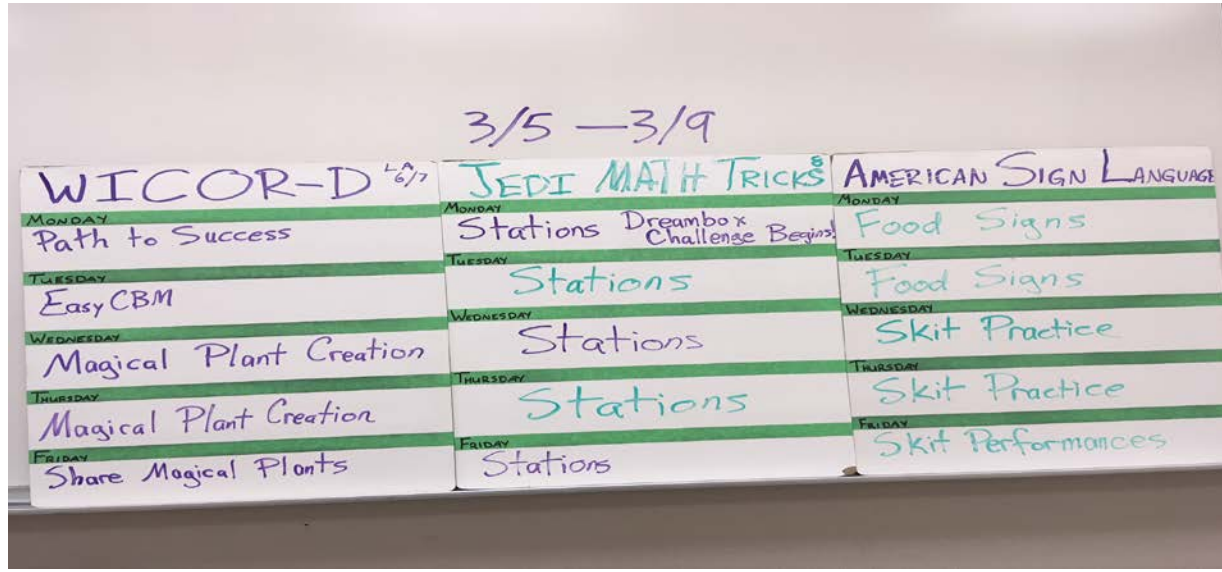 3/5 — 3/9
WICOR-D LA 6/7
MONDAY
Path to Success
TUESDAY
Easy CBM
WEDNESDAY
Magical Plant Creation
THURSDAY
Magical Plant Creation
FRIDAY
Share Magical Plants
JEDI MATH TRICKS 8
MONDAY
Stations Dreambox
Challenge Begins!
TUESDAY
Stations
WEDNESDAY
Stations
THURSDAY
Stations
FRIDAY
Stations
AMERICAN SIGN LANGUAGE
MONDAY
Food Signs
TUESDAY
Food Signs
WEDNESDAY
Skit Practice
THURSDAY
Skit Practice
FRIDAY
Skit Performances